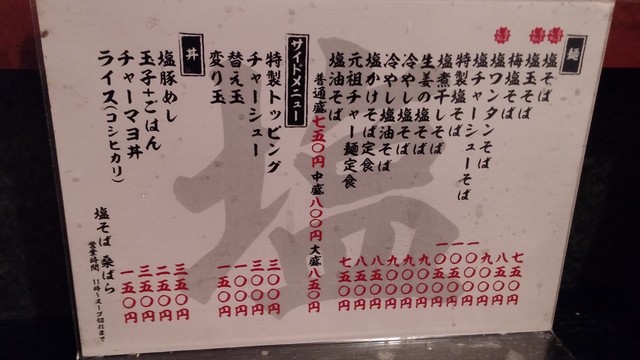 麺
塩そば 七五〇円
塩玉そば 八五〇円
梅塩そば 九〇〇円
塩ワンタンそば
塩チャーシューそば
特製塩そば
塩煮干しそば
生姜の塩そば 九〇〇円
冷やし塩そば 九〇〇円
冷やし塩油そば
塩かけそば定食 八五〇円
元祖チャー麺定食 八五〇円
塩油そば 七五〇円
普通盛七五〇円 中盛八〇〇円 大盛八五〇円
サイドメニュー
特製トッピング 三〇〇円
チャーシュー 三〇〇円
替え玉 一〇〇円
変り玉 一五〇円
丼
塩豚めし 三五〇円
玉子+ごはん 二五〇円
チャーマヨ丼 三五〇円
ライス(コシヒカリ) 一五〇円
塩そば 桑ばら
営業時間 11時〜スープ切れまで
塩